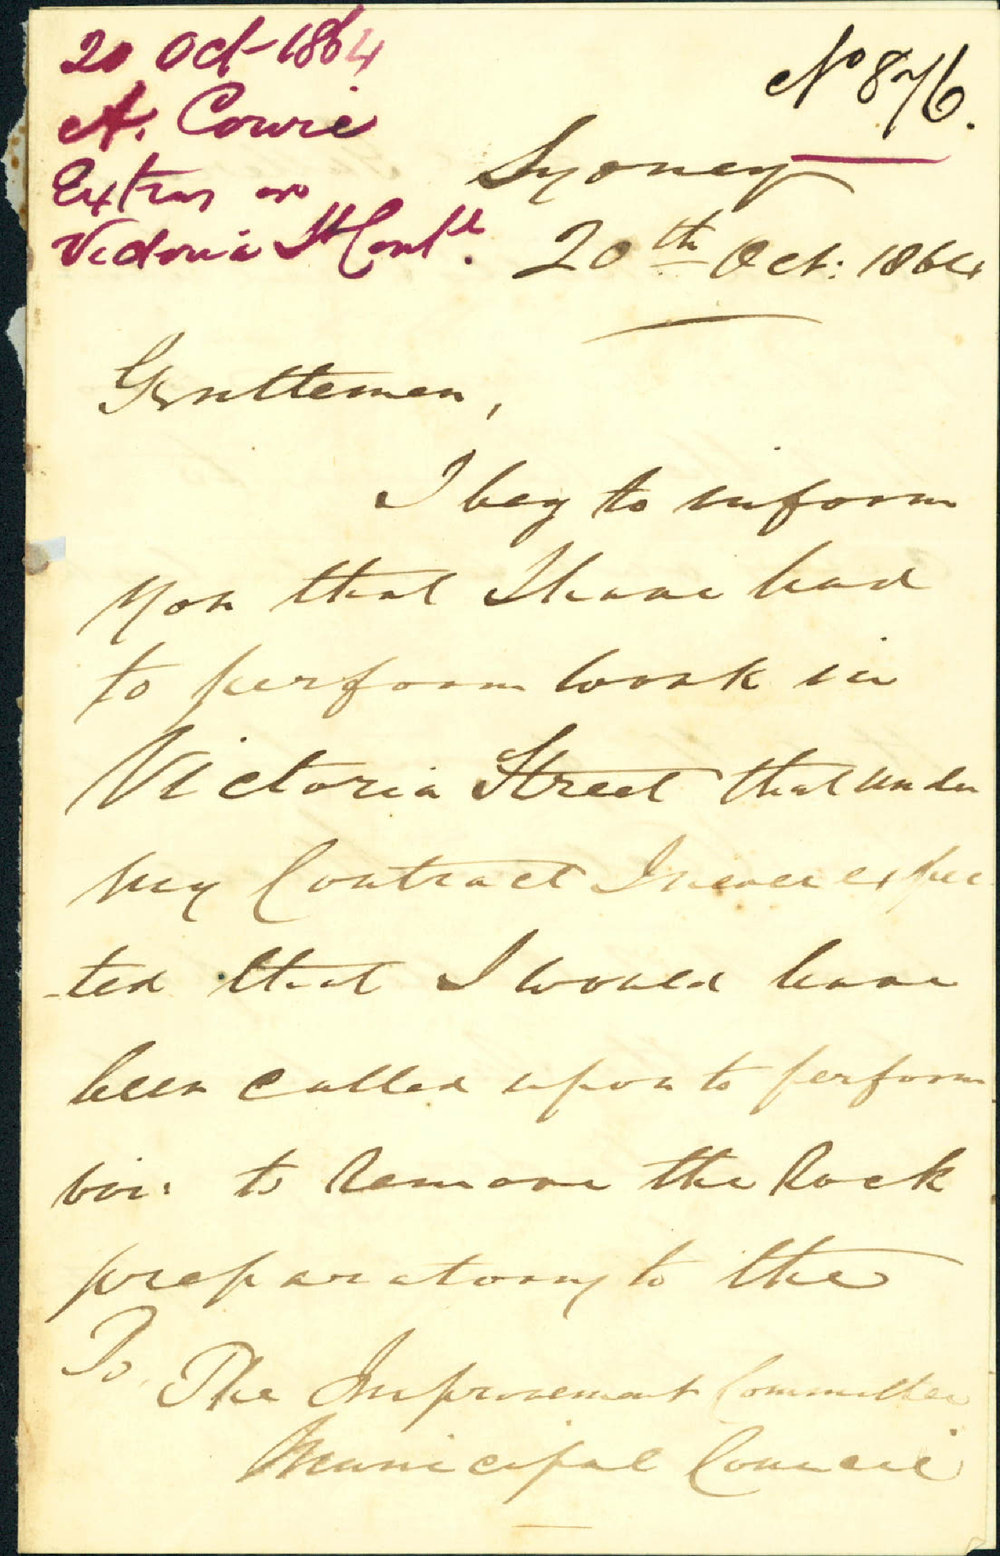 20 Oct 1864
A. Cowie
Extras on
Victoria St Contt.
No 876.
Sydney
20th Oct: 1864
Gentlemen,
I beg to inform
you that I have had
to perform work in
Victoria Street that under
my Contract I never expec
-ted that I would have
been called upon to perform
viz: to remove the Rock
preparatory to the
To,
The Improvement Committee
Municipal Council